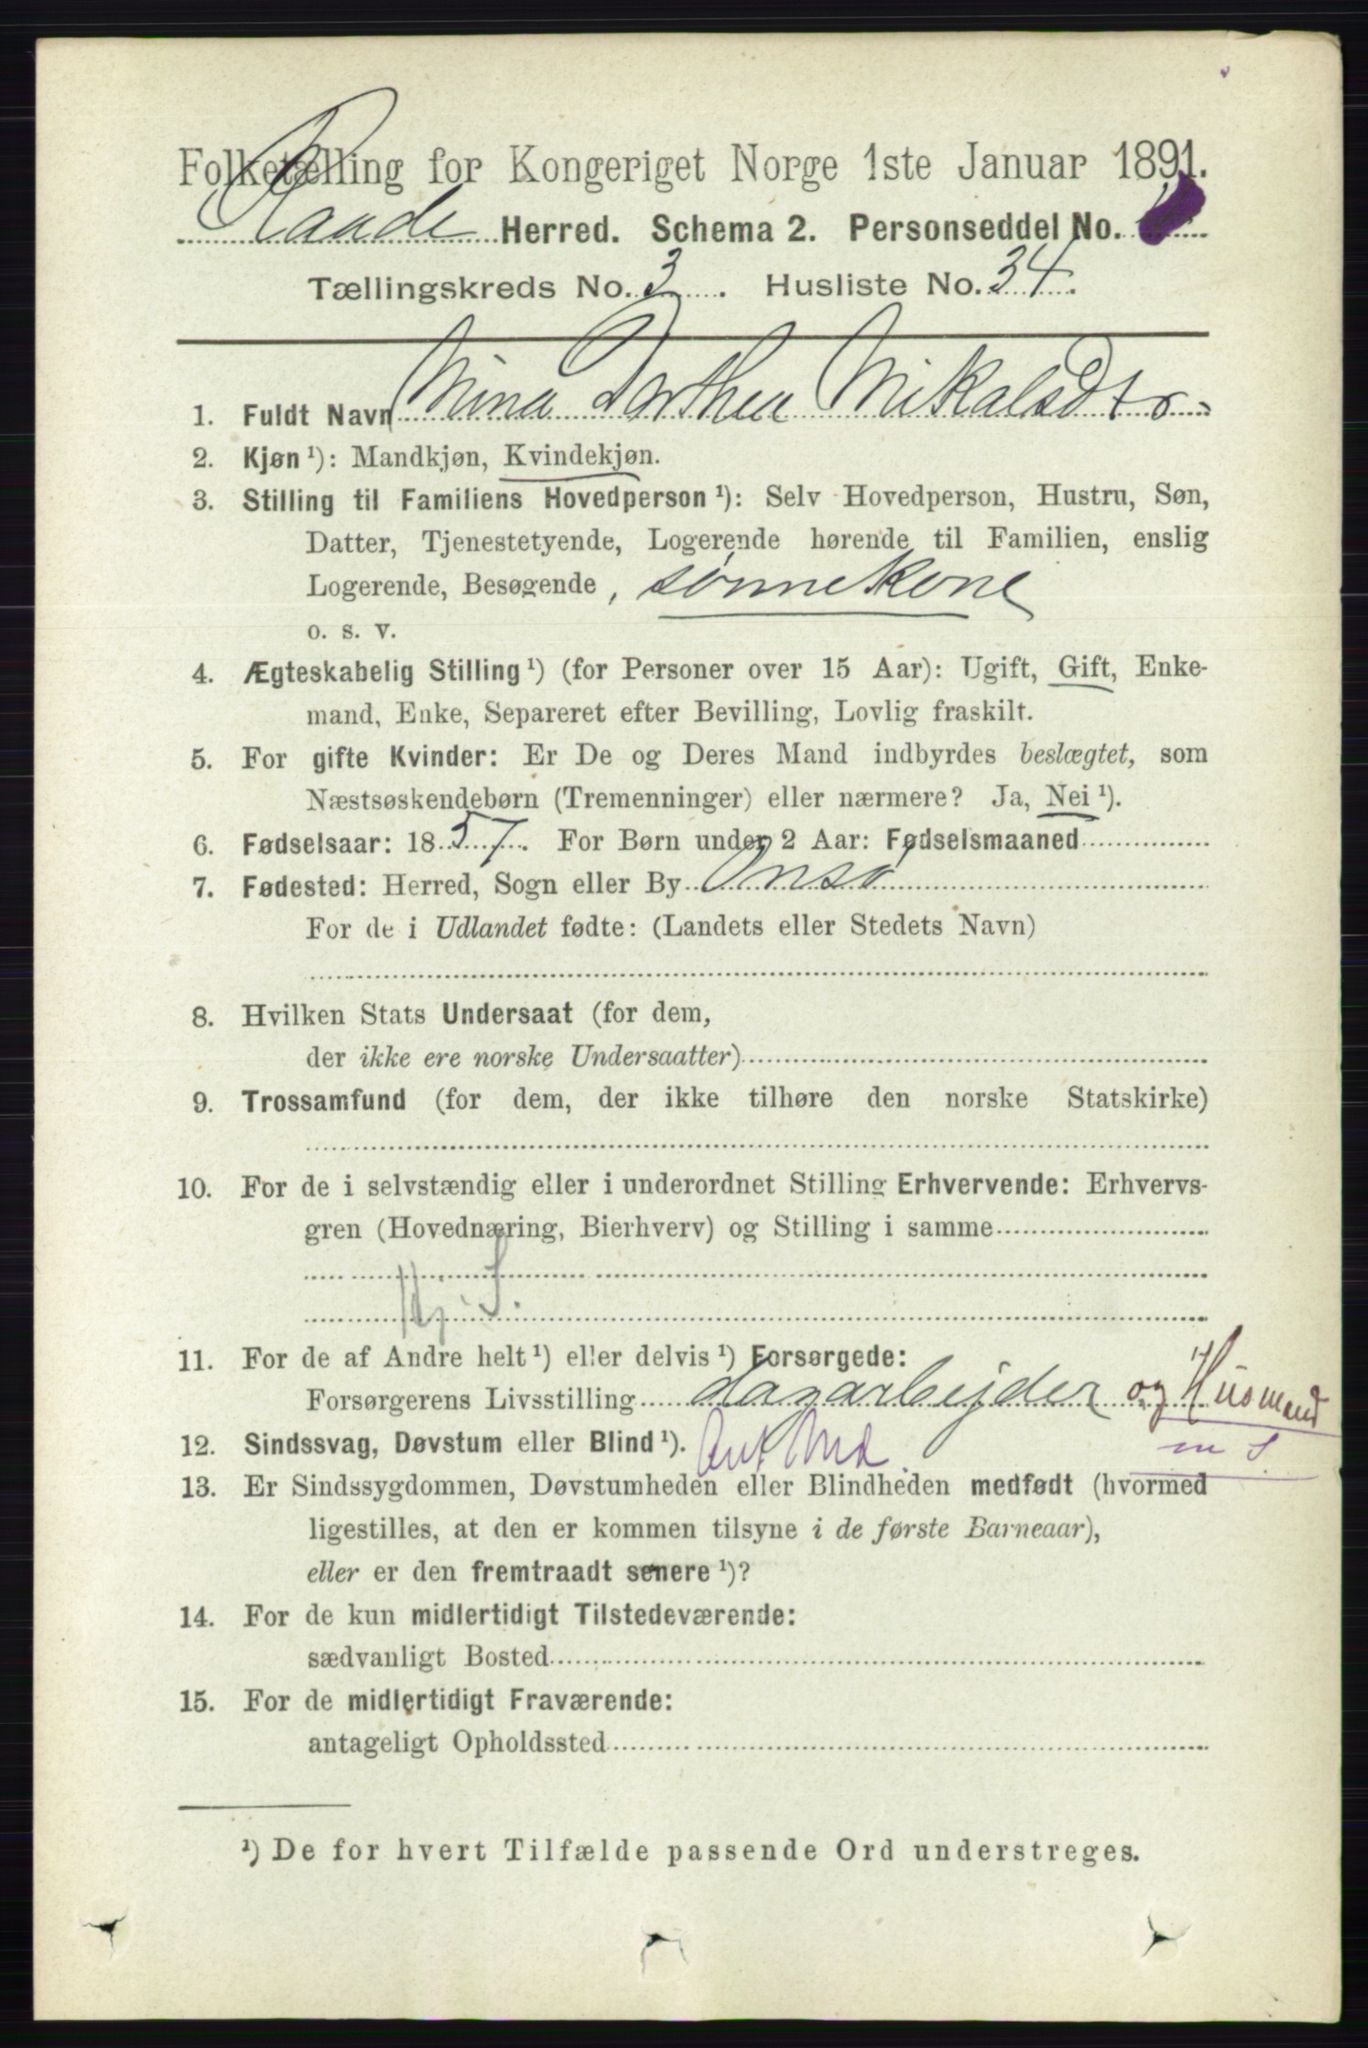 Folketælling for Kongeriget Norge 1ste Januar 1891.
Raade Herred. Schema 2. Personseddel No.
Tællingskreds No. 3. Husliste No. 34.
1. Fuldt Navn Nina Dorthea Mikalsdtr
2. Kjøn ¹): Mandkjøn, Kvindekjøn.
3. Stilling til Familiens Hovedperson ¹): Selv Hovedperson, Hustru, Søn,
Datter, Tjenestetyende, Logerende hørende til Familien, enslig
Logerende, Besøgende, sønnekone
o. s. v.
4. Ægteskabelig Stilling ¹) (for Personer over 15 Aar): Ugift, Gift, Enke-
mand, Enke, Separeret efter Bevilling, Lovlig fraskilt.
5. For gifte Kvinder: Er De og Deres Mand indbyrdes beslægtet, som
Næstsøskendebørn (Tremenninger) eller nærmere? Ja, Nei ¹).
6. Fødselsaar: 1857. For Børn under 2 Aar: Fødselsmaaned
7. Fødested: Herred, Sogn eller By Onsø
For de i Udlandet fødte: (Landets eller Stedets Navn)
8. Hvilken Stats Undersaat (for dem,
der ikke ere norske Undersaatter)
9. Trossamfund (for dem, der ikke tilhøre den norske Statskirke)
10. For de i selvstændig eller i underordnet Stilling Erhvervende: Erhvervs-
gren (Hovednæring, Bierhverv) og Stilling i samme
11. For de af Andre helt ¹) eller delvis ¹) Forsørgede:
Forsørgerens Livsstilling dagarbejder og Husmand
m J
12. Sindssvag, Døvstum eller Blind ¹).
13. Er Sindssygdommen, Døvstumheden eller Blindheden medfødt (hvormed
ligestilles, at den er kommen tilsyne i de første Barneaar),
eller er den fremtraadt senere ¹)?
14. For de kun midlertidigt Tilstedeværende:
sædvanligt Bosted
15. For de midlertidigt Fraværende:
antageligt Opholdssted
¹) De for hvert Tilfælde passende Ord understreges.